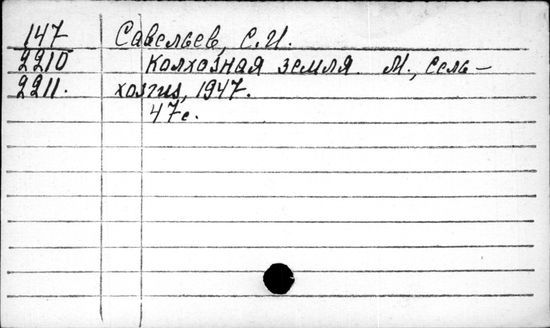 147 Савельев, С.И.
2210 Колхозная земля. М., Сель-
2211. хозгиз, 1947.
47с.